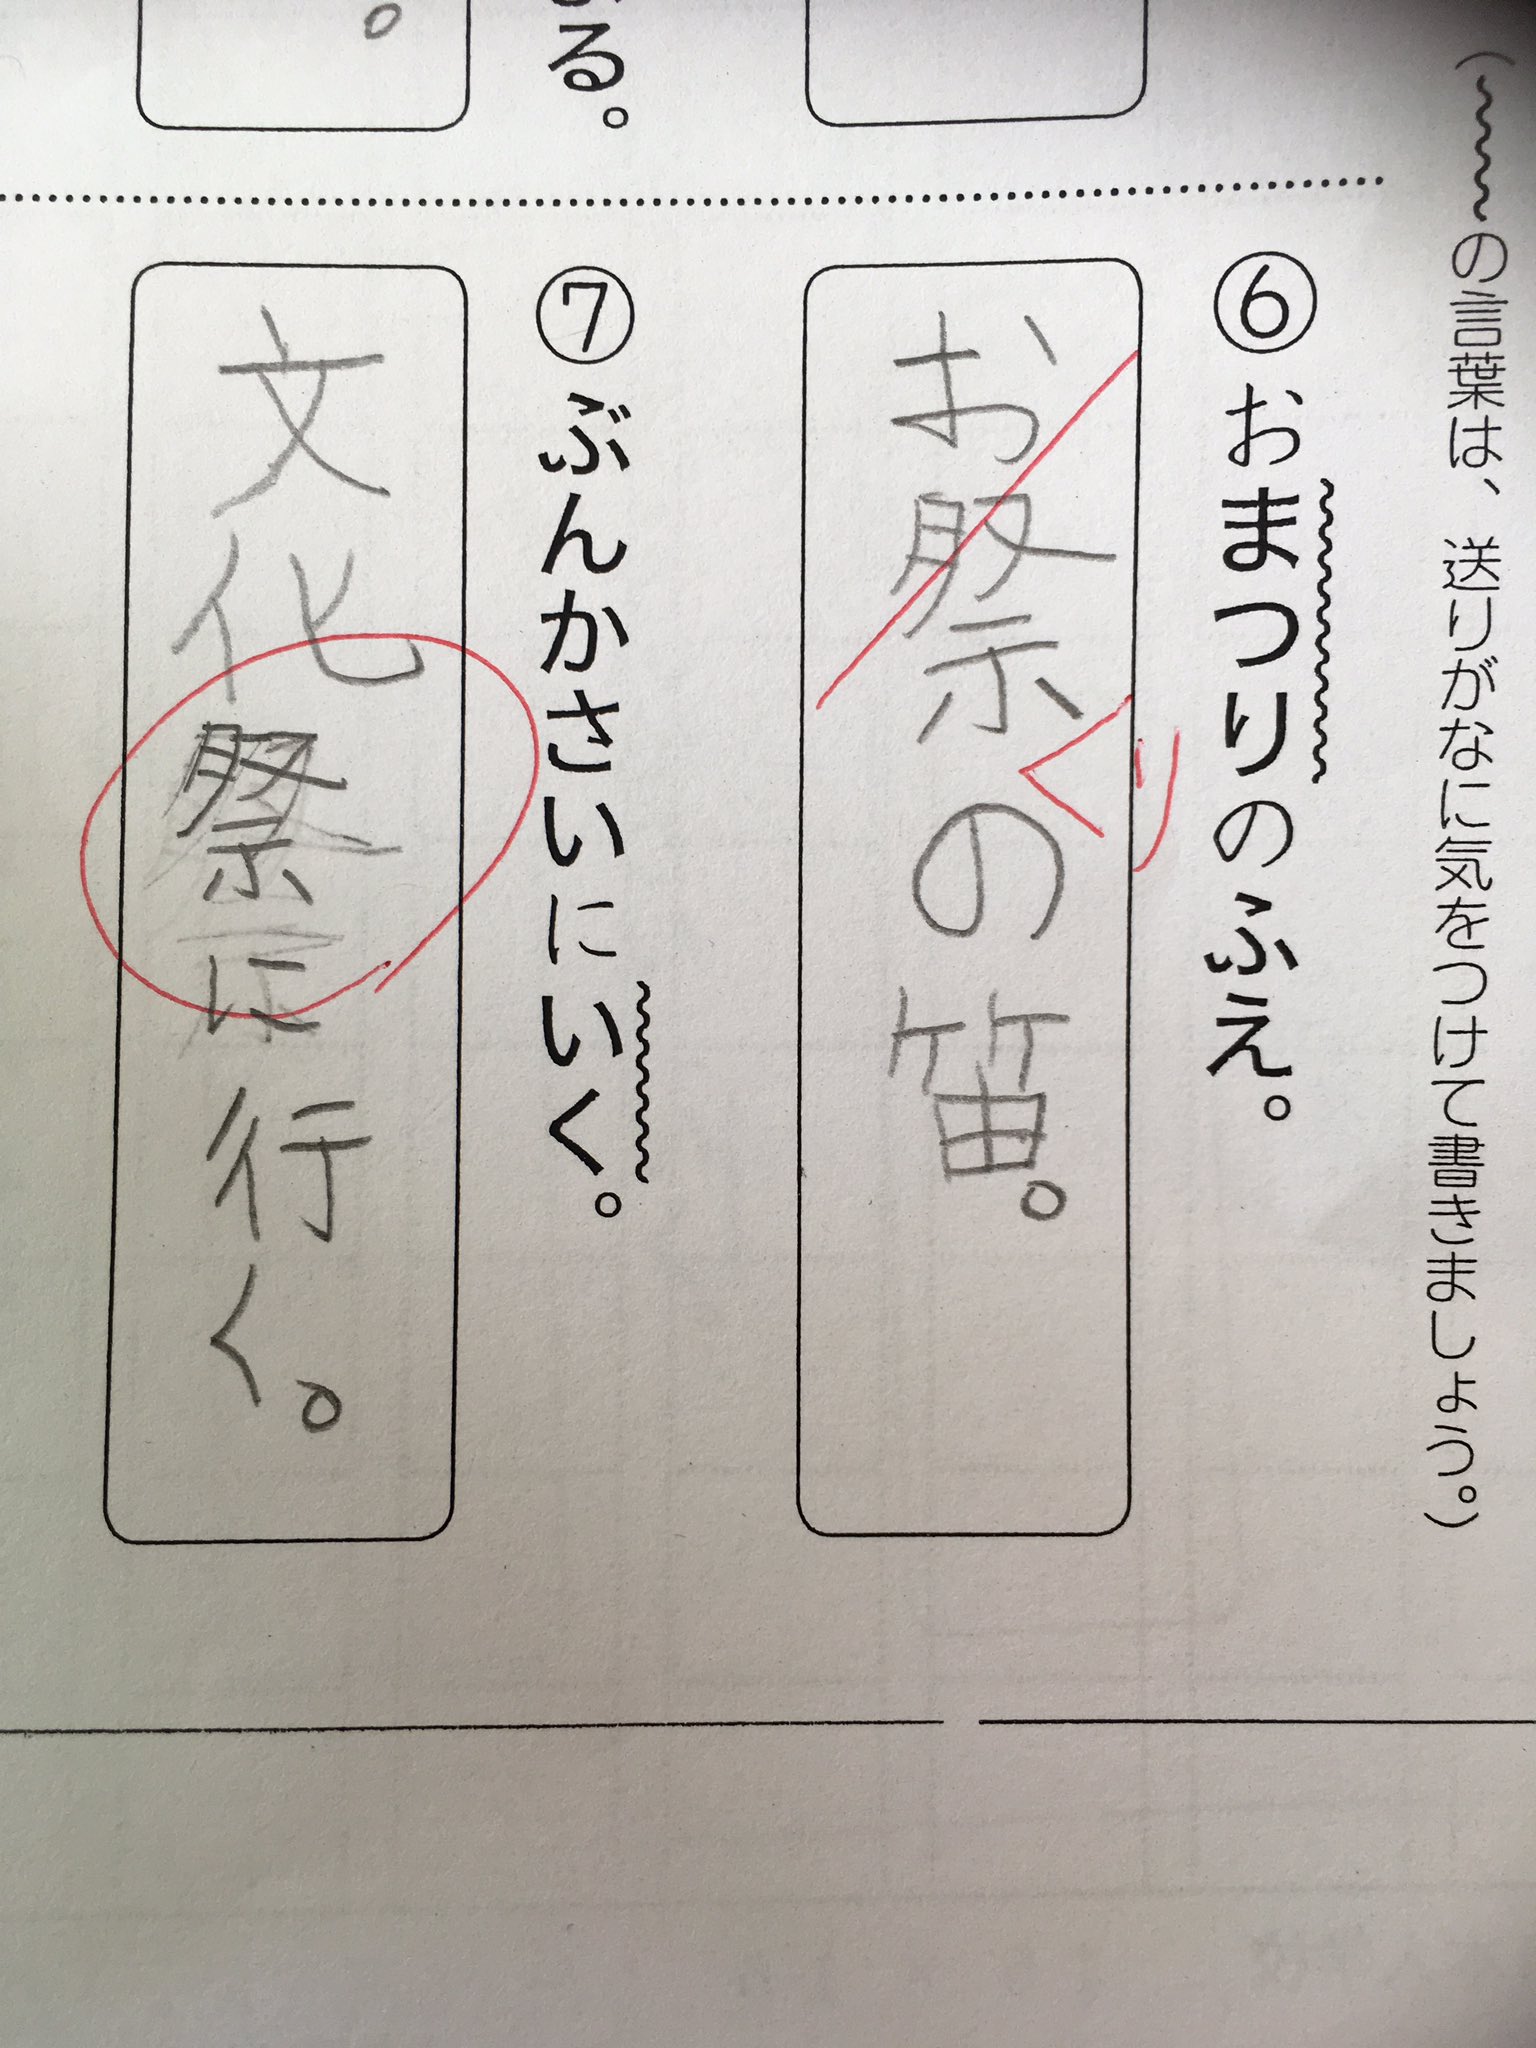 (の言葉は、送りがなに気をつけて書きましょう。)
⑥おまつりのふえ。
お祭の笛。
り
⑦ぶんかさいにいく。
文化祭に行く。
る。
。